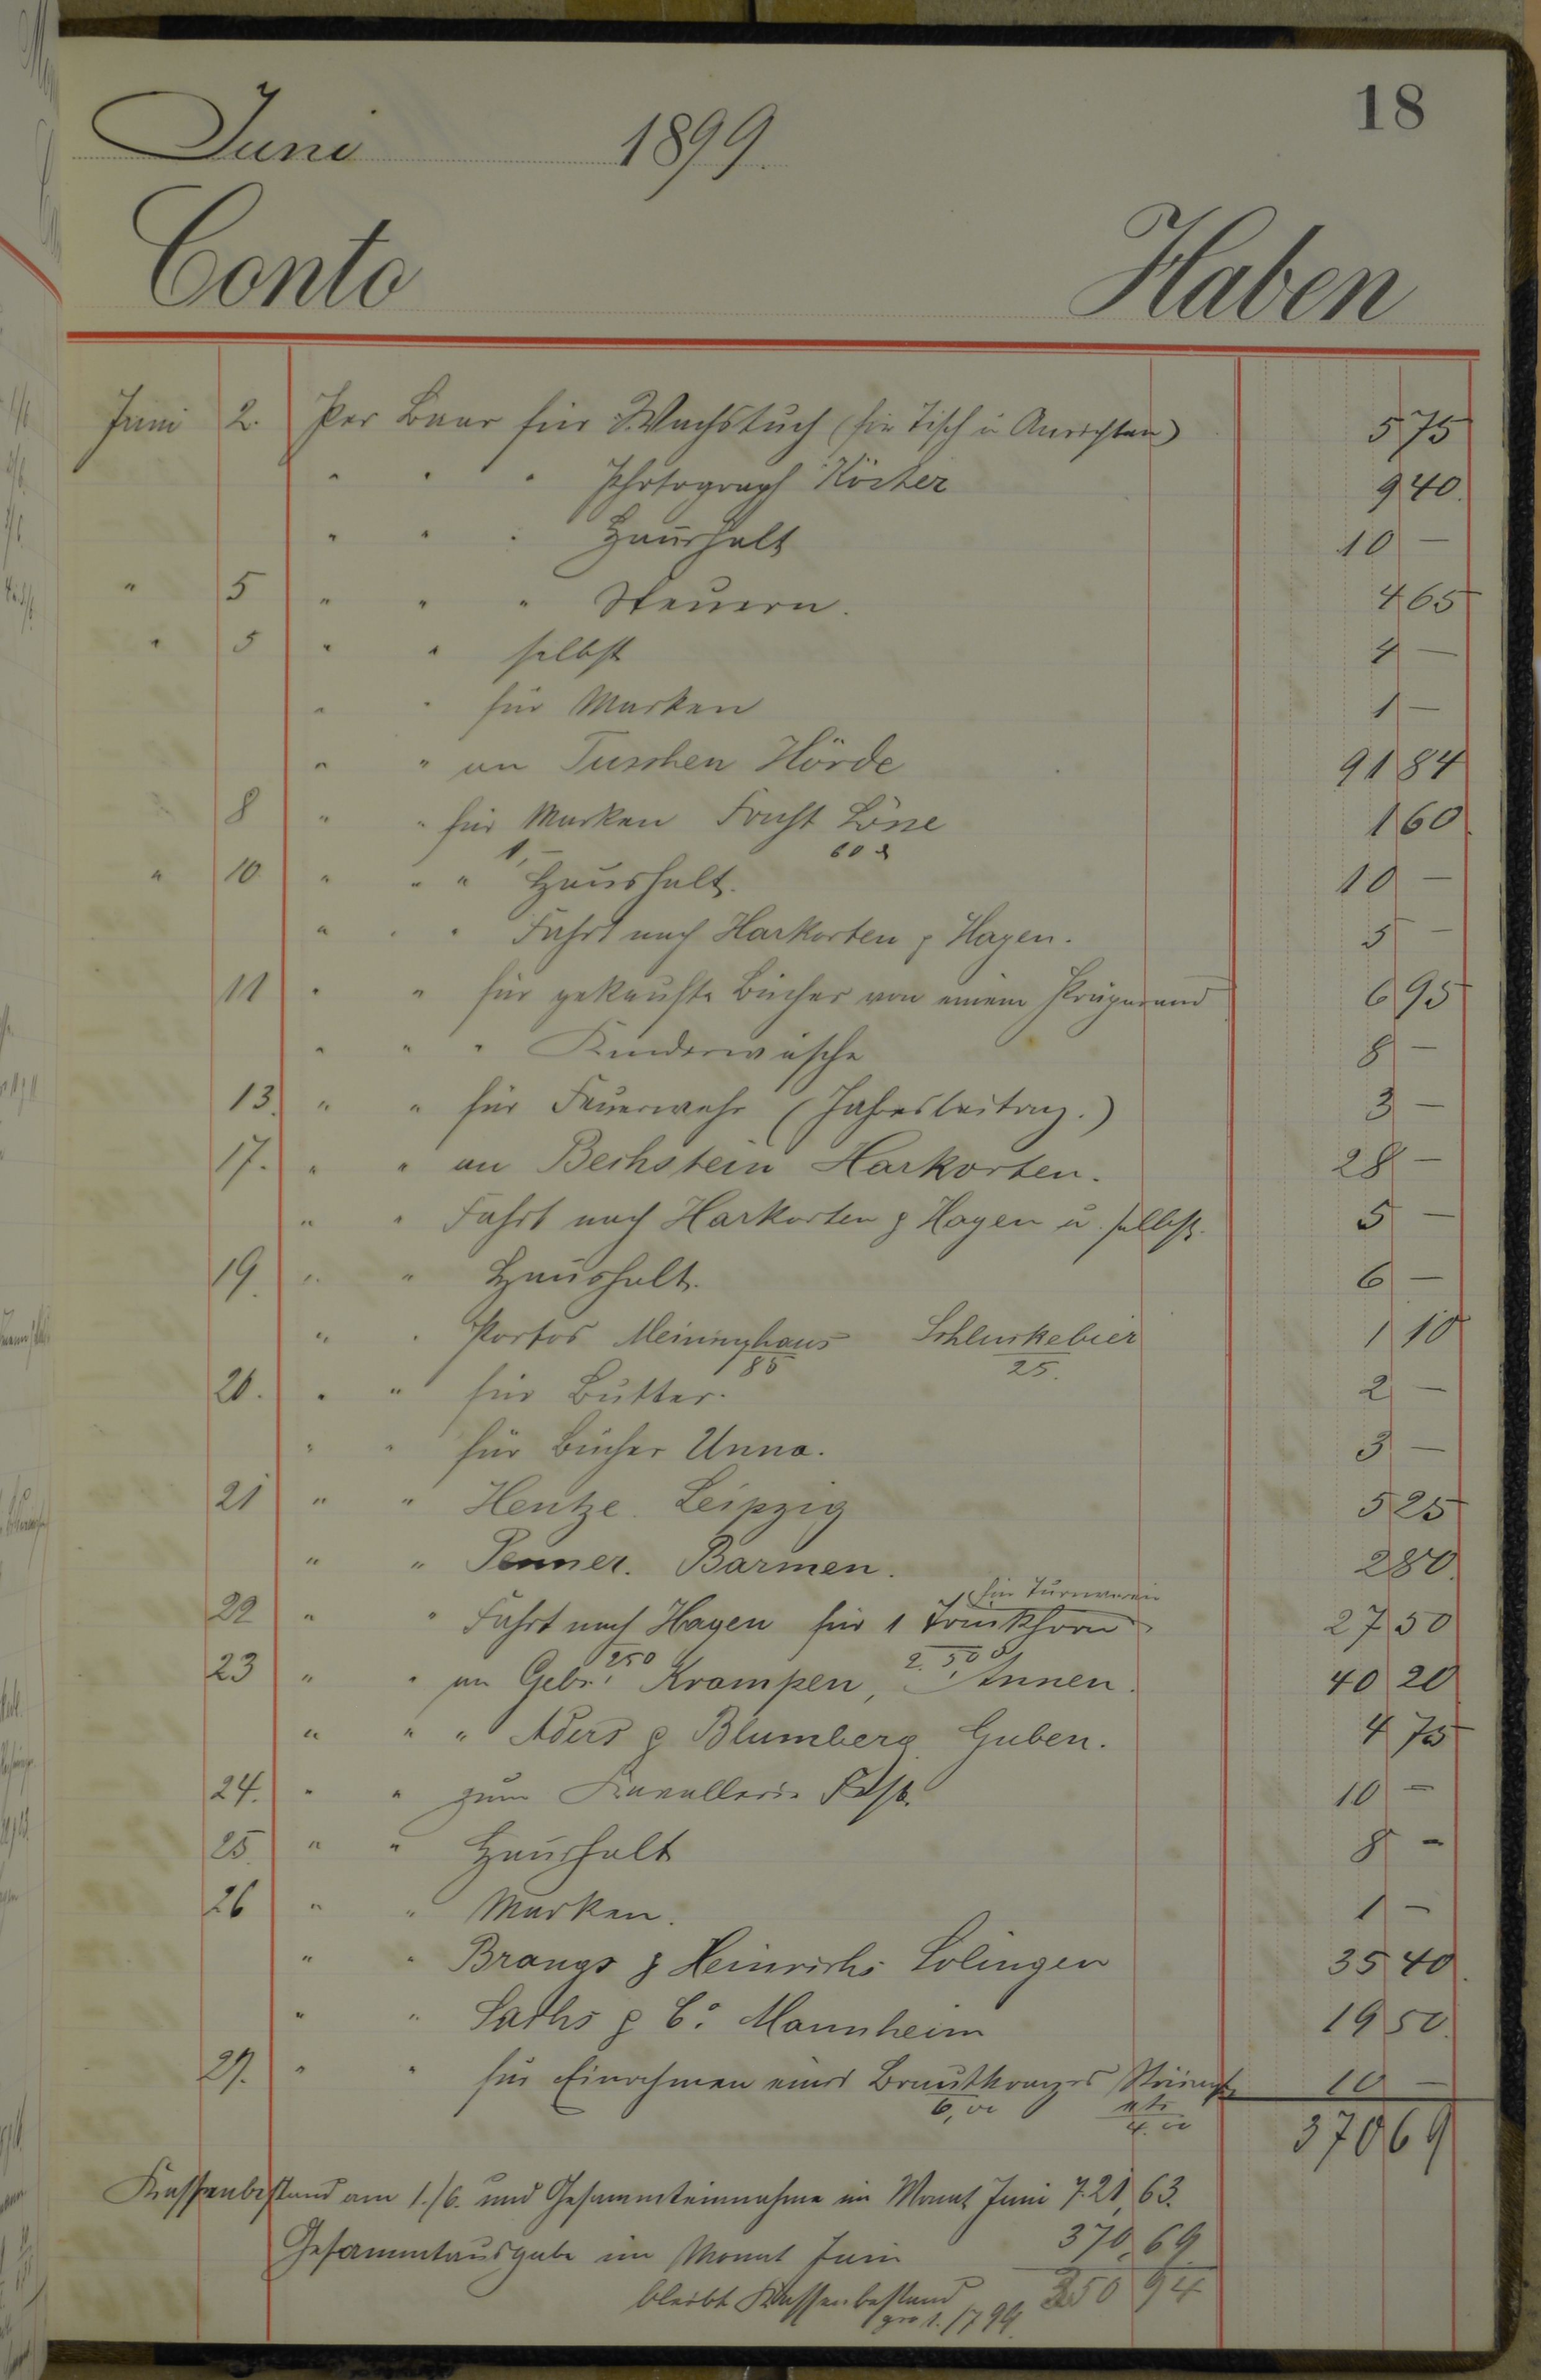 18
Juni 1899.
Conto Haben
Juni 2. Per Baar für Wachstuch (für Tisch u Anrichten) 5 75
" " " Photograph Köster 9 40.
" " " Haushalt 10 —
" 5 " " " Steuern. 4 65
" 5 " " selbst 4 —
" " für Marken 1 —
" " an Tuschen Hörde 91 84
8 " " für Marken Fracht Löne 1 60
1,— 60 ₰
" 10. " " " Haushalt. 10 —
" " " Fahrt nach Harkorten & Hagen. 5 —
11 " " für gekaufte Bücher von einem 6 95
" " " Kinderwäsche 8 —
13. " " für Feuerwehr (Jahresbeitrag.) 3 —
17. " " an Bechstein Harkorten. 28 —
" " Fahrt nach Harkorten & Hagen u. selbst. 5 —
19. " " Haushalt. 6 —
" " Portos Meininghaus Schluckebier 1 10
85 25.
20. " " für Butter. 2 —
" " für Bücher Unna. 3 —
21 " " Hentze. Leipzig 5 25
" " Penner. Barmen. 2 80.
für Turnverein
22 " " Fahrt nach Hagen für 1 Trinkhorn 27 50
250 2.50
23 " " an Gebr. Krampen, Annen. 40 20
" " " Aders & Blumberg Guben. 4 75
24. " " zum Kavallerie Fest. 10 —
25. " " Haushalt 8 —
26 " " Marken. 1 —
" " Brangs & Heinrichs Solingen 35 40.
" " Sachs & Co. Mannheim 19 50.
29. " " für Einrahmen eines Brautkranzes 10 —
6,00 4.00
370 69
Kassenbestand am 1./6. und Gesammteinnahme im Monat Juni 721,63.
Gesammtausgabe im Monat Juni 370,69
bleibt Kassenbestand 350 94
pro 1./7 99.